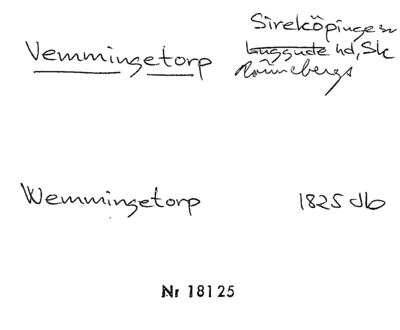 Vemmingetorp
Sireköpinge sn
Luggude hd, Sk
Rönnebergs
Wemmingetorp
1825 db
Nr 18125